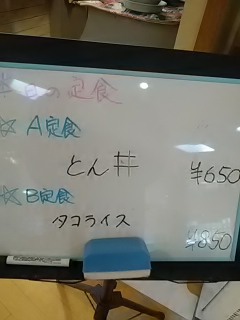 ☆ 日の定食
☆ A定食
とん丼 ¥650
☆ B定食
タコライス ¥850